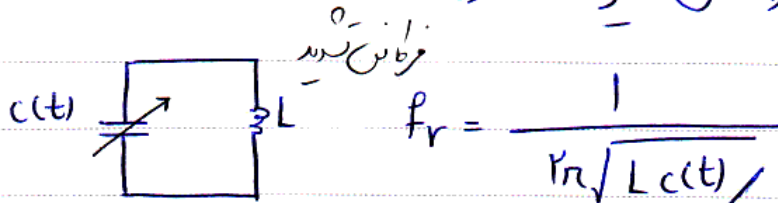 فرکانس تشدید
c(t)
L
fᵣ = 1 / ۲π√(L c(t))